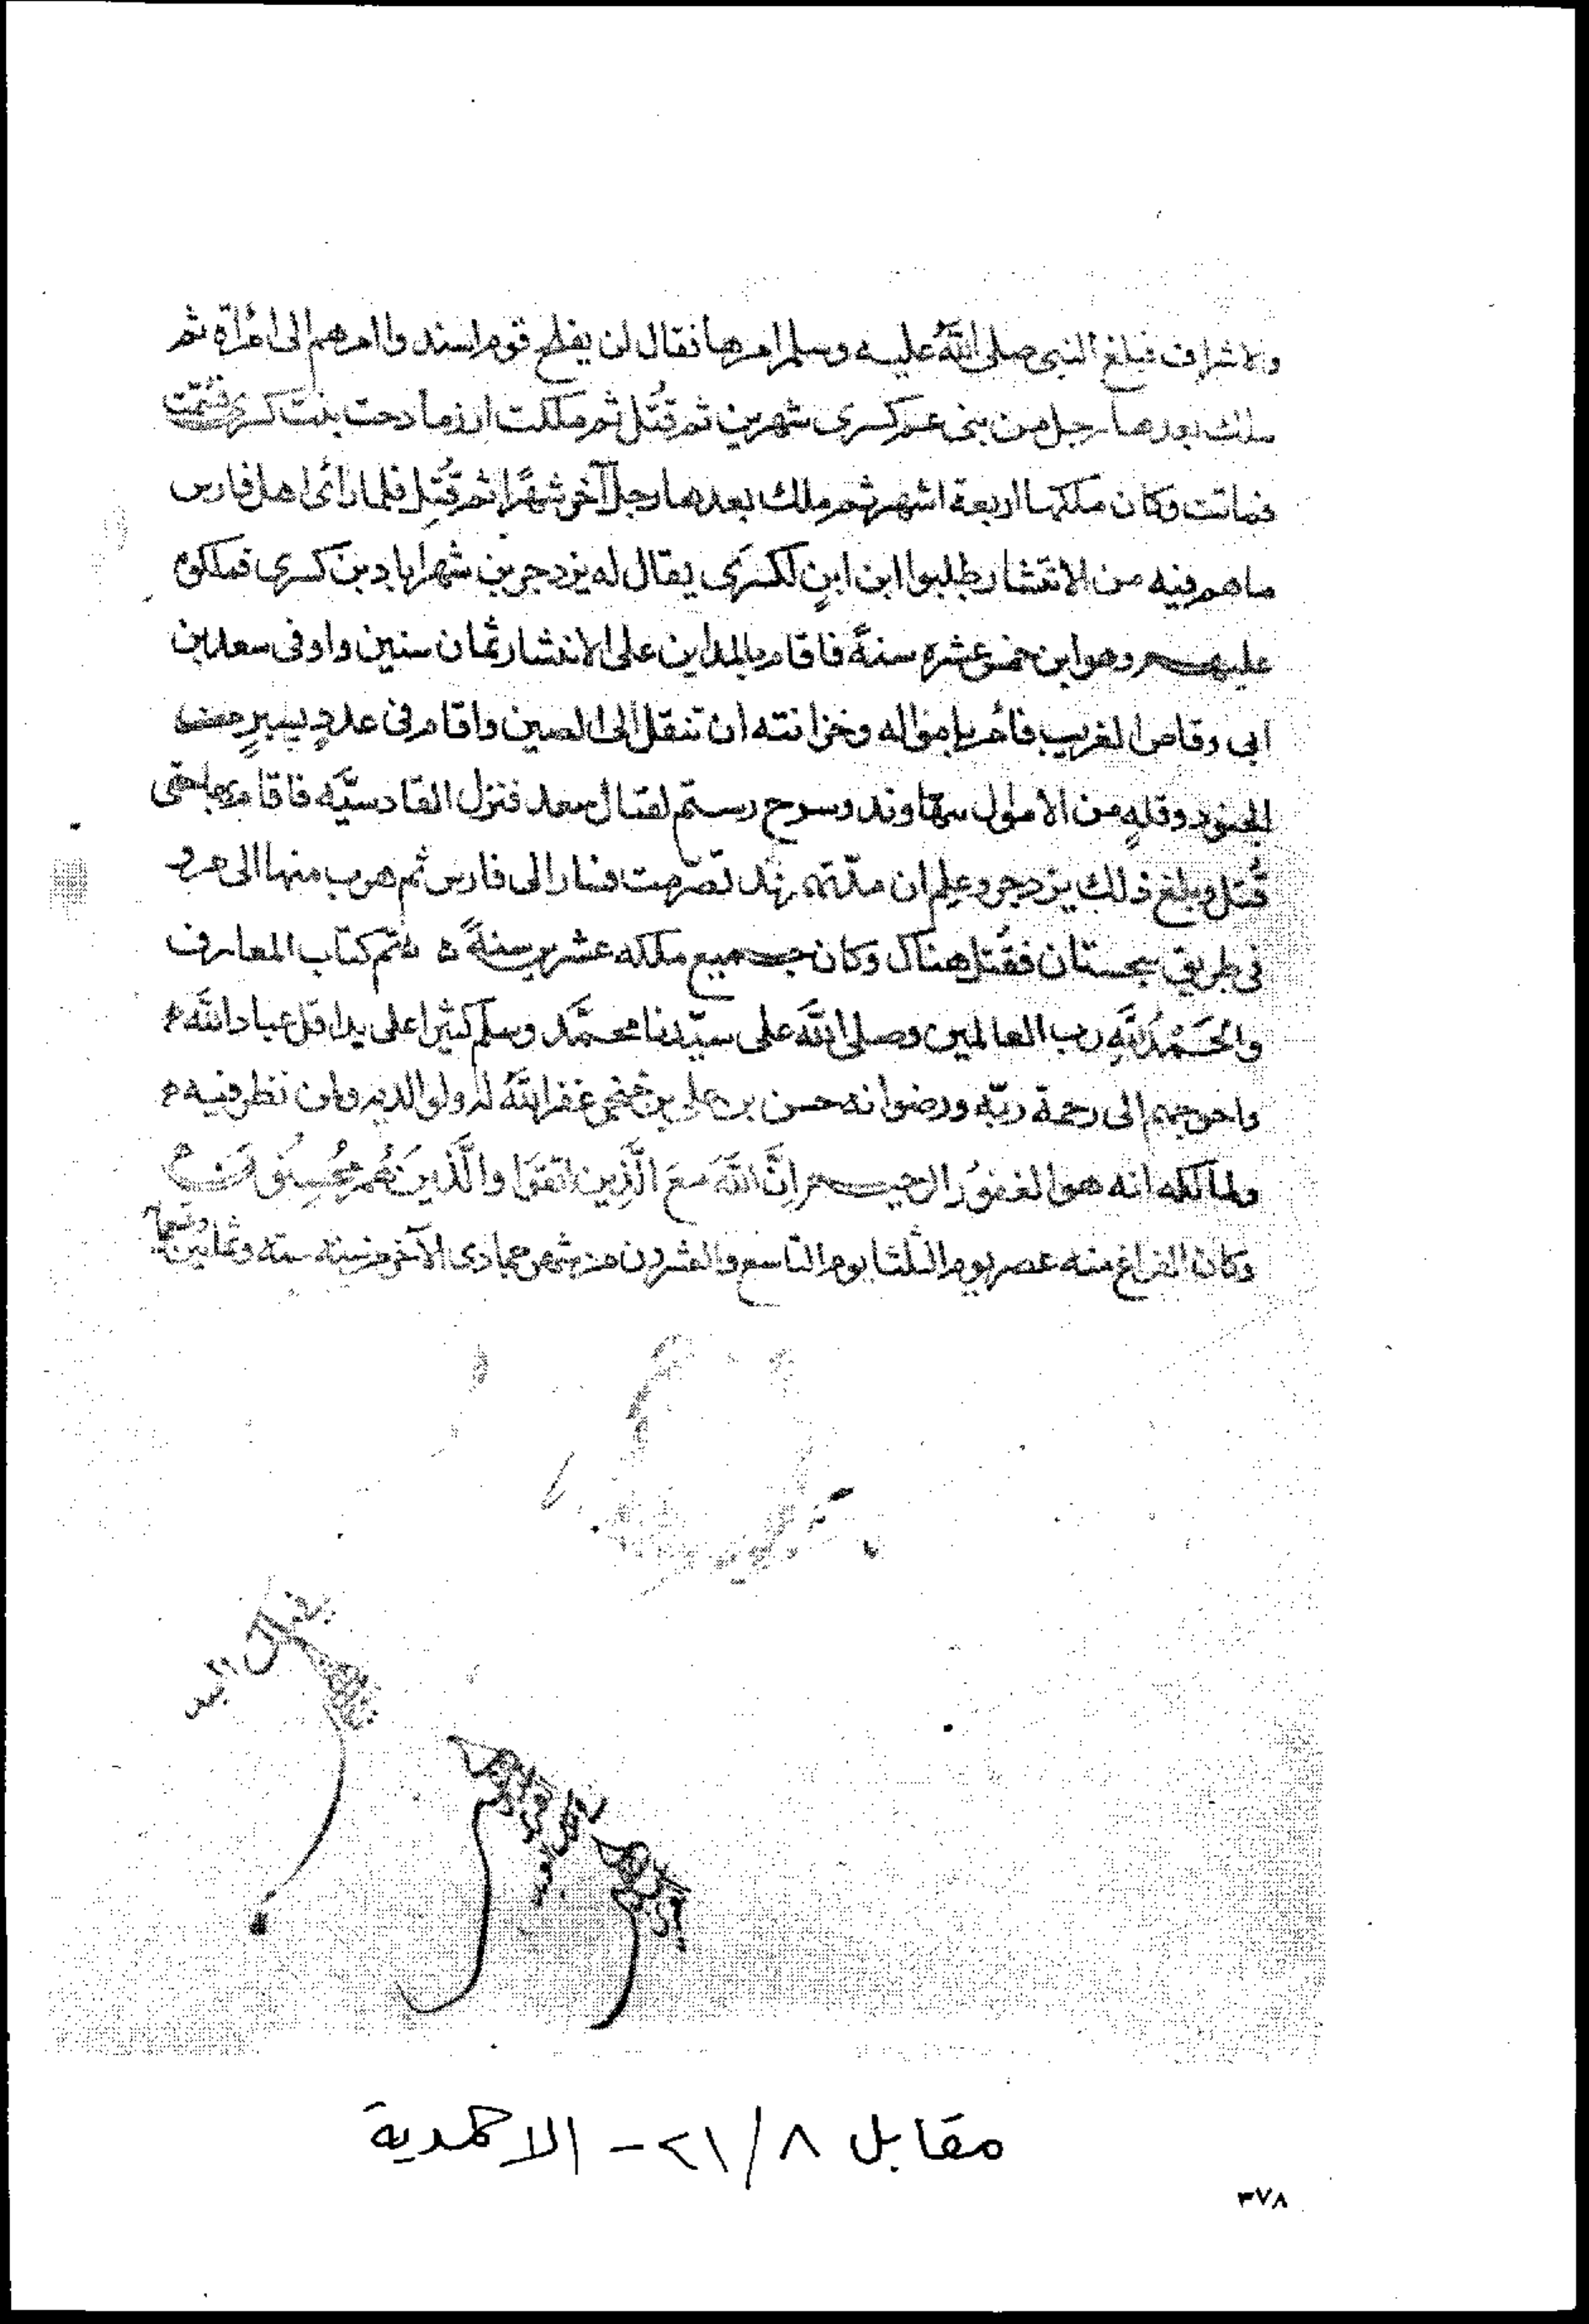 والاشراف فبلغ النبى صلى اللَّه عليه وسلم امرها فقال لن يفلح قوم اسندوا امرهم الى امرأة ثم
ملك بعدها رجل من بنى عم كسرى شهرين ثم قُتل ثم ملكت ارزما دحت بنت كسرى فسُمّت
فماتت وكان ملكها اربعة اشهر ثم ملك بعدها رجل آخر شهرًا ثم قُتِل فلما رائ اهل فارس
ما هم فيه من الانتشار طلبوا ابن ابنٍ لكسرَى يقال له يزدجر بن شهرابا د بن كسرى فملكوه
عليهم وهو ابن خمس عشره سنةً فاقام بالمداين على الانتشار ثمان سنين واوفى سعد بن
ابى وقاص العريب فأمر باموَاله وخزانته ان تنقل الى الصين واقام فى عددٍ يسيرٍ من
الجنود وقلهٍ من الاموال بنهاوند وسرح رستم لقتال سعد فنزل القادسيَّه فاقام بها حتى
قُتل وبلغ ذلك يزدجرد وعلِم ان مدّتهم قد تصرّمت فسار الى فارس ثم هرب منها الى مرو
فى طريق سجستان فقُتل هناك وكان جميع ملكه عشرين سنةً ۵ تم كتاب المعارف
والحَمْدُ للَّهِ رب العالمين وصلى اللَّه على سيّدنا محمَّد وسلّم كثيرا على يد اقل عباد اللَّه
واحوجهم الى رحمة ربّه ورضوانه حسن بن على بن غفر اللَّهُ له ولوالديه ولمن نظر فيه
ولمالكه انه هو الغفوُر الرحيم اِنَّ اللَّهَ مَعَ الَّذِين اتقَوا والَّذينَ هُم مُحُسِنُونَ
وكان الفراغ منه عصر يوم الثلثا يوم التاسع والعشرين من شهر جمادى الآخر من سنه سته وثمانين
مقابل ٢١/٨ - الاحمدية
٣٧٨